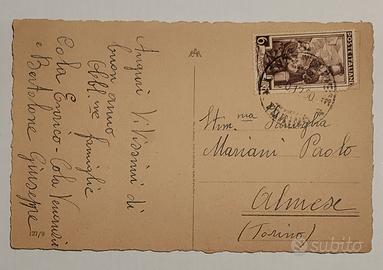 Auguri Vivissimi di
buon anno
Obbl.me famiglie
Cola Enrico - Cola Venanzio
e Bertolone Giuseppe
POSTE ITALIANE
Stim.ma Famiglia
Mariani Paolo
Almese
(Torino)
subito